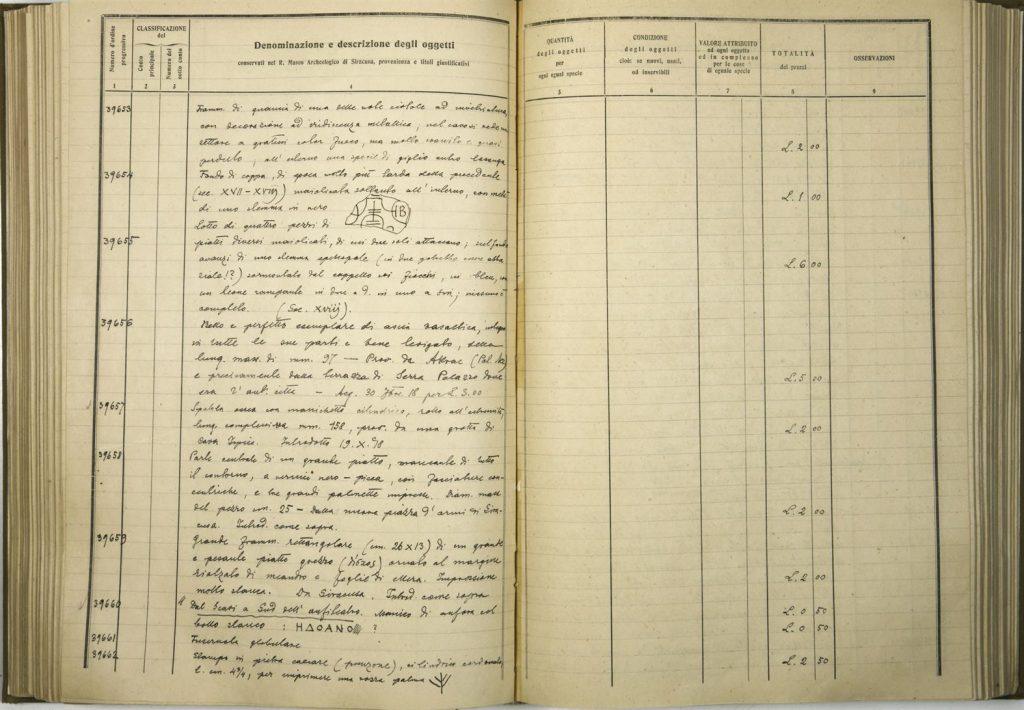 Numero d'ordine progressivo
CLASSIFICAZIONE del
Conto principale
Numero del sotto conto
Denominazione e descrizione degli oggetti
conservati nel R. Museo Archeologico di Siracusa, provenienza e titoli giustificativi
QUANTITÀ degli oggetti per ogni egual specie
CONDIZIONE degli oggetti cioè: se nuovi, usati, od inservibili
VALORE ATTRIBUITO ad ogni oggetto ed in complesso per le cose di eguale specie
TOTALITÀ dei prezzi
OSSERVAZIONI
1 2 3 4 5 6 7 8 9
39653 Framm. di di una delle solite ciotole ad
con decorazione ad iridiscenza metallica, nel cavo si vede
color fuoco, ma molto e quasi
perduto, all'esterno una specie di giglio entro losanga L. 2 00
39654 Fondo di coppa, di epoca molto più tarda della precedente
(sec. XVII-XVIII) maiolicata soltanto all'interno, con metà L. 1 00
di uno stemma in nero IB
39655 Lotto di quattro pezzi di
piatti diversi maiolicati, di cui due soli attaccano; nel fondo
avanzi di uno stemma (in due
!?) sormontato dal cappello coi fiocchi, in bleu, con L. 6 00
un leone rampante in due a d. in uno a sin; nessuno è
completo. (Sec. XVIII).
39656 Bello e perfetto esemplare di ascia basaltica, integra
in tutte le sue parti e bene levigata, della
lung. mass. di mm. 97 — Prov. da Akrae (Pal.
e precisamente dalla terrazza di Serra Palazzo dove L. 5 00
era l'ant. città - Acq. 30 18 per L. 3.00
39657 Spatola ossea con manichetto cilindrico, rotto all'estremità,
lung. complessiva mm. 158, prov. da una grotta di L. 2 00
Cava Ispica. Introdotto 19. X. 918
39658 Parte centrale di un grande piatto, mancante di tutto
il contorno, a vernice nero-picea, con fasciature con-
centriche, e tre grandi palmette impresse. Diam. mass.
del pezzo cm. 25 - Dalla nuova piazza d'armi di Sira- L. 2 00
cusa. Introd. come sopra.
39659 Grande framm. rettangolare (cm. 26 X 13) di un grande
e pesante piatto grezzo ornato al margine
rialzato di meandro e foglie di edera. Impressione
molto stanca. Da Siracusa. Introd. come sopra L. 2 00
39660 Dal Scavi a Sud dell'anfiteatro. Manico di anfora col L. 0 50
bollo stanco: ΗΔΟΑΝΟ ?
39661 Fuseruola globulare L. 0 50
39662 Stampo in pietra calcare (punzone), cilindrico L. 2 50
l. cm. 4¾, per imprimere una rozza palma